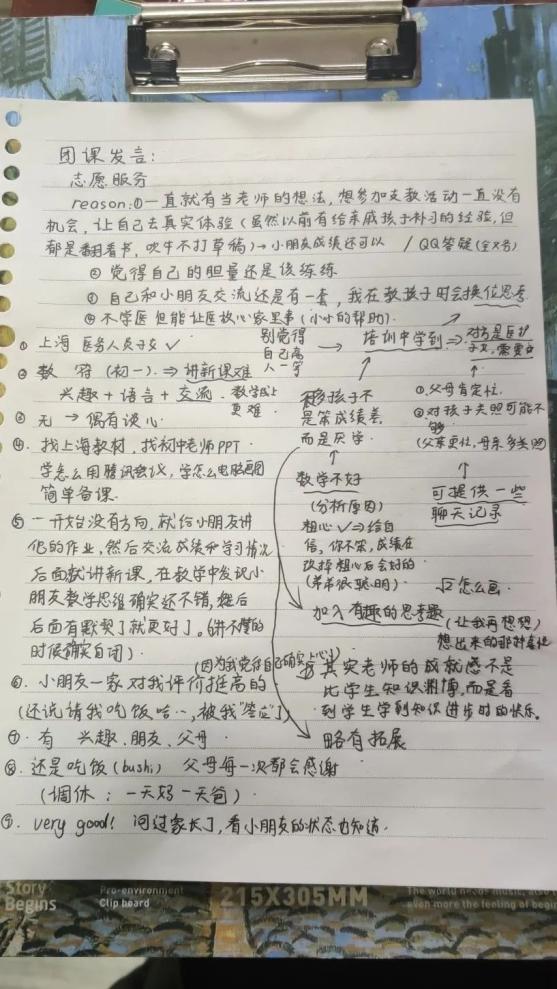 团课发言:
志愿服务
reason:①一直就有当老师的想法,想参加支教活动一直没有
机会,让自己去真实体验(虽然以前有给亲戚孩子补习的经验,但
都是翻看书,吹牛不打草稿)→小朋友成绩还可以 / QQ答疑
② 觉得自己的胆量还是该练练
③ 自己和小朋友交流还是有一套,我在教孩子时会换位思考
④ 不学医但能让医放心家里事(小小的帮助).
① 上海 医务人员子女 ✓
别觉得
自己高
人一等
→ 培训中学到 ⇒
对方是医护
子女,需要
② 数 (初一) ⇒ 讲新课难
兴趣 + 语言 + 交流.
数学线上
更难.
孩子不
是笨成绩差,
而是厌学.
①.父母肯定忙.
②对孩子关照可能不
够.
(父亲更忙,母亲多关照)
③ 无 → 偶有谈心.
④. 找上海教材,找初中老师PPT.
学怎么用腾讯会议,学怎么电脑画图
简单备课.
数学不好
(分析原因)
粗心 ✓ ⇒ 给自
信,你不笨,成绩在
改掉粗心后会好的
(弟弟很聪明)
可提供一些
聊天记录
√2 怎么画.
⑤ 一开始没有方向,就给小朋友讲
他的作业,然后交流成绩和学习情况
后面就讲新课,在教学中发识小
朋友数学思维确实还不错,继后
后面有默契了就更好了。(讲不懂的
时候确实自闭).
加入有趣的思考题
(让我再想想)
想出来的那种喜悦
(因为我觉得自己确实上心了)
⑥. 小朋友一家对我评价挺高的
(还说请我吃饭哈…,被我"答应"了)
其实老师的成就感不是
比学生知识渊博,而是看
到学生学到知识进步时的快乐.
⑦. 有 兴趣.朋友.父母.
略有拓展
⑧. 还是吃饭(bushi) 父母每一次都会感谢
(调休:一天妈一天爸).
⑨. very good! 问过家长了,看小朋友的状态也知道.
Story
Begins
Pro-environment
Clip board
215X305MM
even more the feeling of